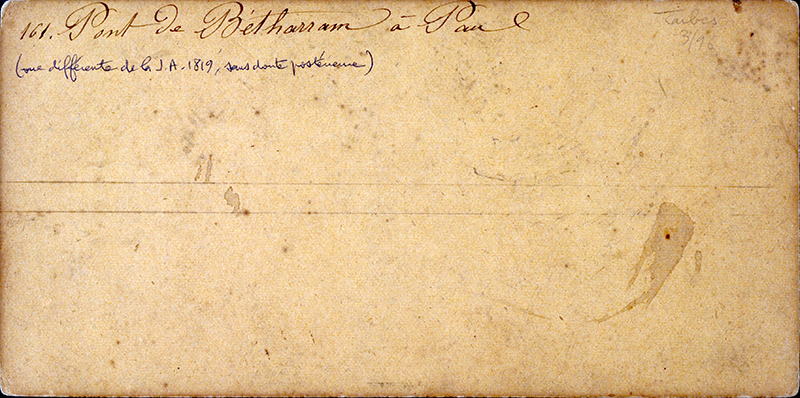 161. Pont de Bétharram à Pau
(vue différente de la J.A. 1819, sans doute postérieure)
Tarbes
3/96